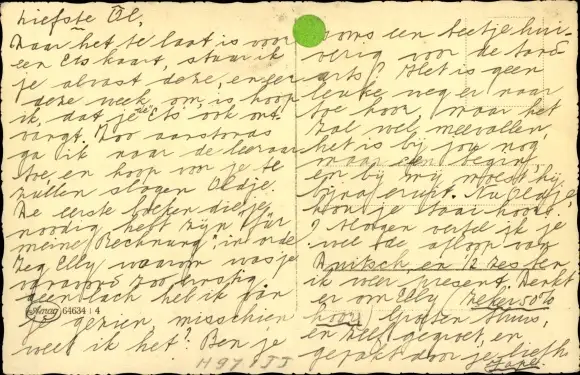 Liefste Ol,
Daar het te laat is voor
een Etskaart, stuur ik
je alvast deze, en er
deze week om is hoop
ik, dat je die Ets ook ont-
vangt. Zoo aanstonds
ga ik naar de leeraar
toe, en hoop van je te
zullen slagen Oldje.
De eerste boeken die je
noodig hebt zijn "für
meine Rechnung" in orde
Zeg Elly, waarom was je
vanavond zoo ernstig.
geen lach heb ik van
je gezien misschien
weet ik het? Ben je
soms een beetje hui-
verig voor de tand
arts? Het is geen
leuke weg er naar
toe hoor, maar het
zal wel meevallen,
het is bij jou nog
maar een begin,
en bij mij moest hij
bijna eruit. Nu Oldje
hou je taai hoor.
Morgen vertel ik je
wel de afloop van
Duitsch, en 1/2 zes ben
ik weer present. Denkt
er om Elly, zeker 50%
hoor! Groeten thuis,
en zelf gegroet, en
gepakt door je liefh.
Amag 64634 | 4
H 97 1 JJ